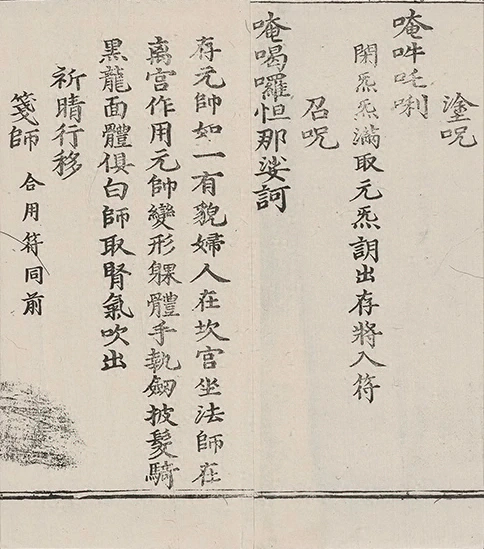 塗呪
唵吽吒唎
閉炁炁滿取元炁䏍出存將入符
召呪
唵喝囉怛那娑訶
存元帥如一有貌婦人在坎宮坐法師在
离宮作用元帥變形躶體手執劒披髮騎
黑龍面體俱白師取腎氣吹出
祈晴行移
箋師 合用符同前